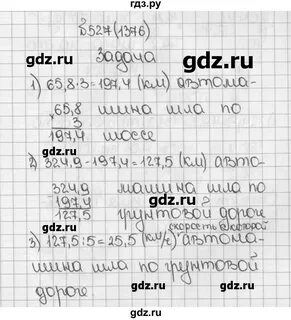 gdz.ru
№527(1376)
gdz.ru
Задача
1) 65,8·3=197,4 (км) автома-
65,8 шина шла по
3
197,4 шоссе
2) 324,9-197,4=127,5 (км) авто-
324,9 машина шла по
197,4
127,5 грунтовой дороге
скорость с которой
3) 127,5:5=25,5 (км/ч) автома-
шина шла по грунтовой
дороге
gdz.ru
gdz.ru
gdz.ru